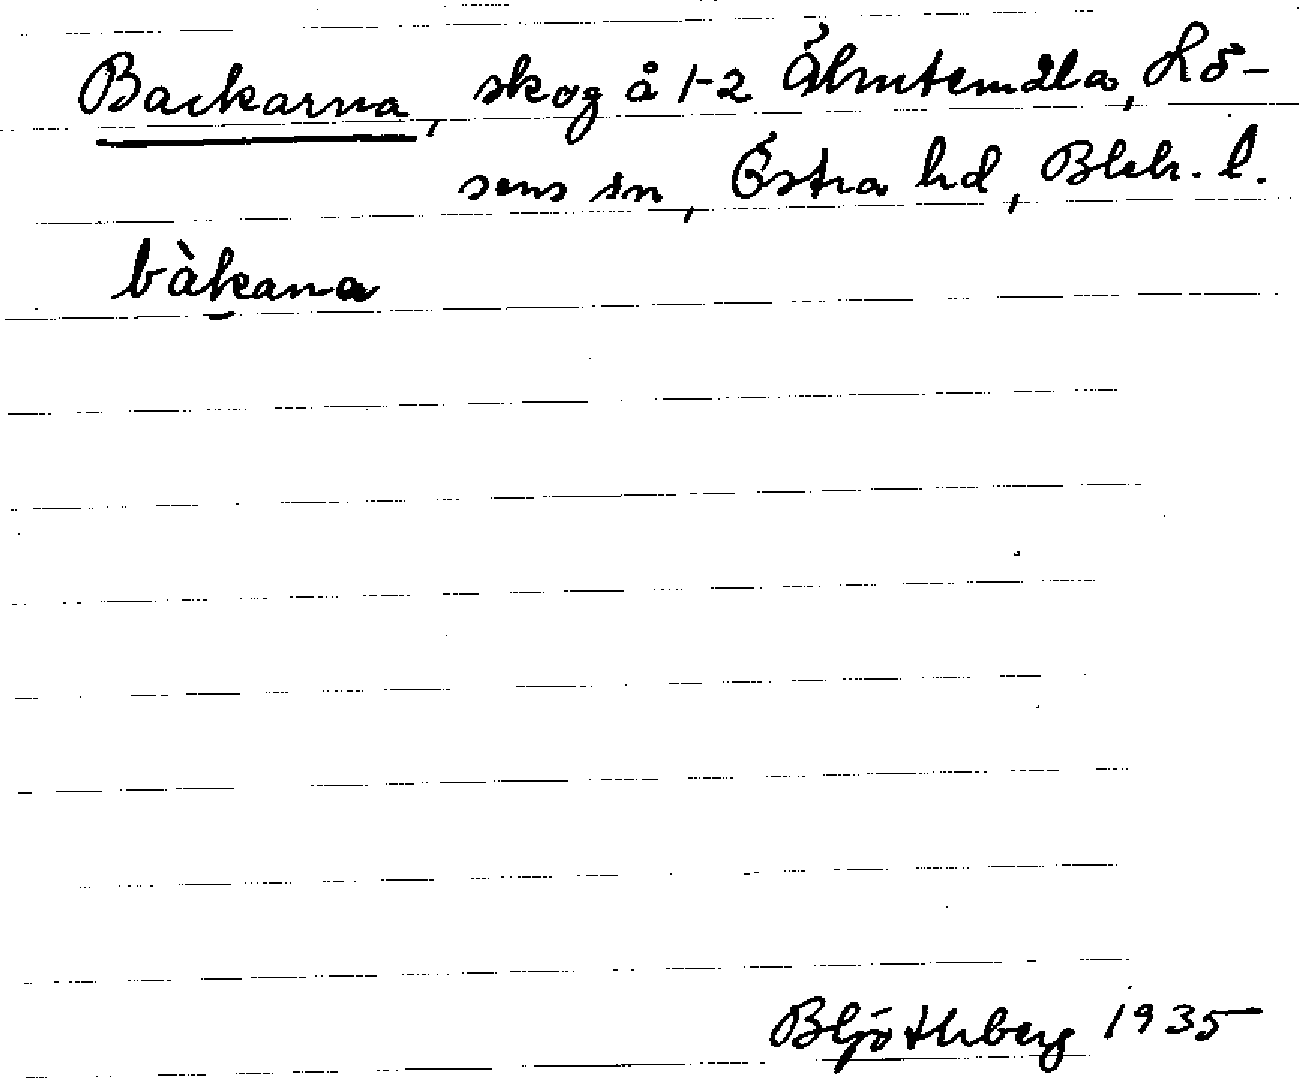 Backarna, skog å 1-2 Älmtemåla, Lö-
sens sn, Östra hd, Blek. l.
bàkana
BLjöthberg 1935